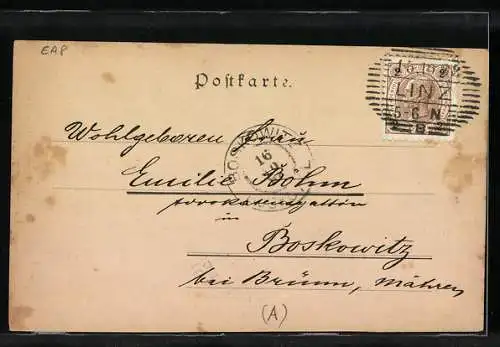 EAP
Postkarte.
LINZ
5-6 N
Wohlgeboren Frau
BOSKOWITZ
16
Emilie Böhm
Advokatensgattin
in
Boskowitz
bei Brünn, Mähren
(A)